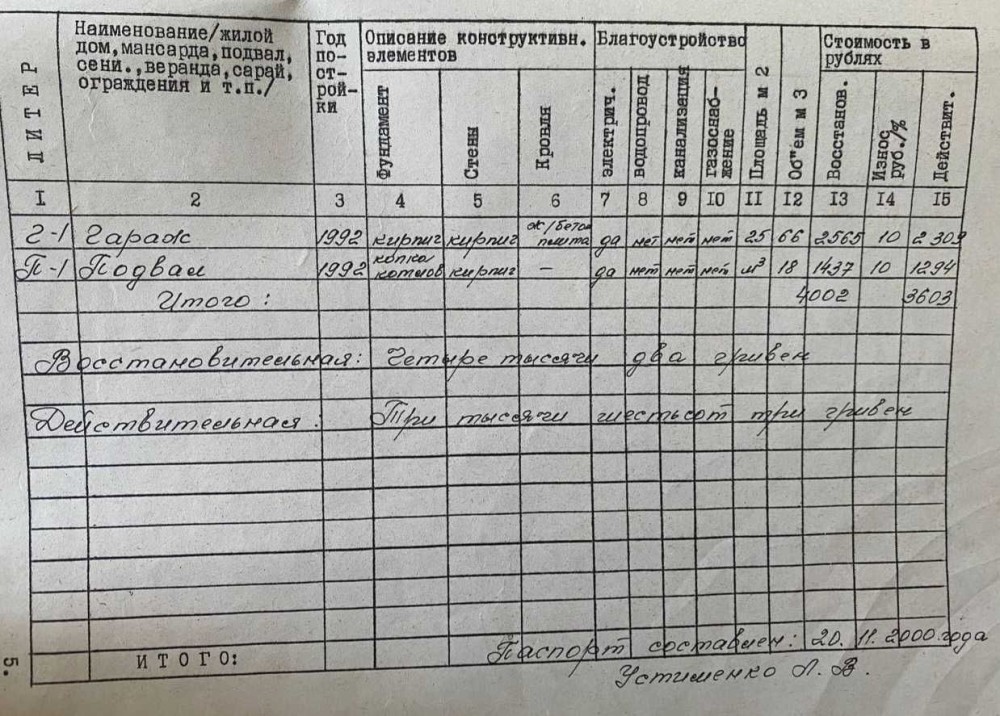 ЛИТЕР
Наименование/жилой
дом, мансарда, подвал,
сени., веранда, сарай,
ограждения и т.п./
Год
по-
ст-
рой-
ки
Описание конструктивн.
элементов
Фундамент
Стены
Кровля
Благоустройство
электрич.
водопровод
канализация
газоснаб-
жение
Площадь м 2
Об"ем м 3
Стоимость в
рублях
Восстанов.
Износ
руб./%
Действит.
1 2 3 4 5 6 7 8 9 10 11 12 13 14 15
Г-1 Гараж 1992 кирпич кирпич ж/бетон плита да нет нет нет 25 66 2565 10 2309
П-1 Подвал 1992 копка котлов кирпич – да нет нет нет м³ 18 1437 10 1294
Итого: 4002 3603
Восстановительная: Четыре тысячи два гривен
Действительная: Три тысячи шестьсот три гривен
Паспорт составлен: 20. 11. 2000 года
ИТОГО:
Устименко Л. В.
5.